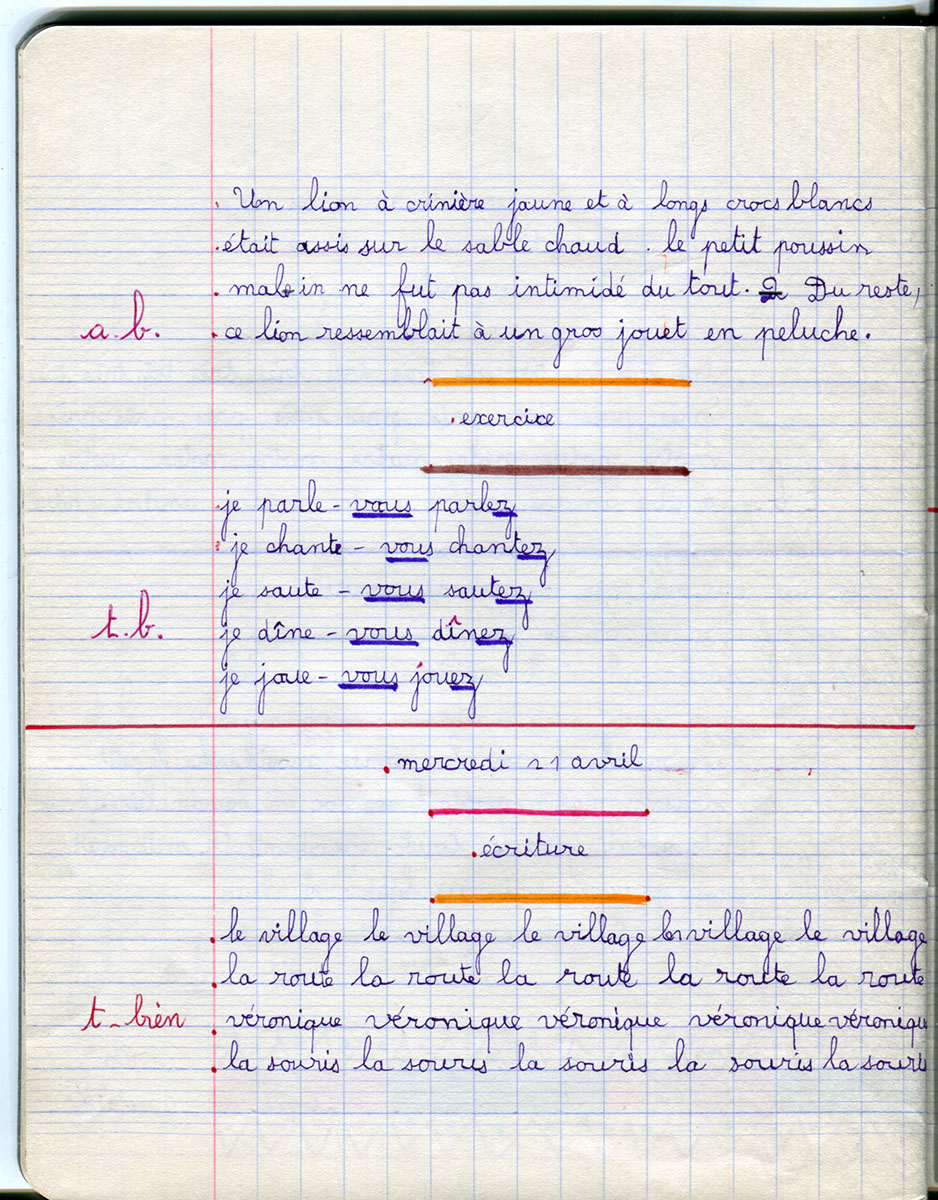 Un lion à crinière jaune et à longs crocs blancs
était assis sur le sable chaud. le petit poussin
malin ne fut pas intimidé du tout. Du reste,
a.b. ce lion ressemblait à un gros jouet en peluche.
exercice
je parle - vous parlez
je chante - vous chantez
je saute - vous sautez
t.b. je dîne - vous dînez
je joue - vous jouez
mercredi 21 avril
écriture
le village le village le village le village le village
la route la route la route la route la route
t-bien véronique véronique véronique véronique véroniqu
la souris la souris la souris la souris la souris